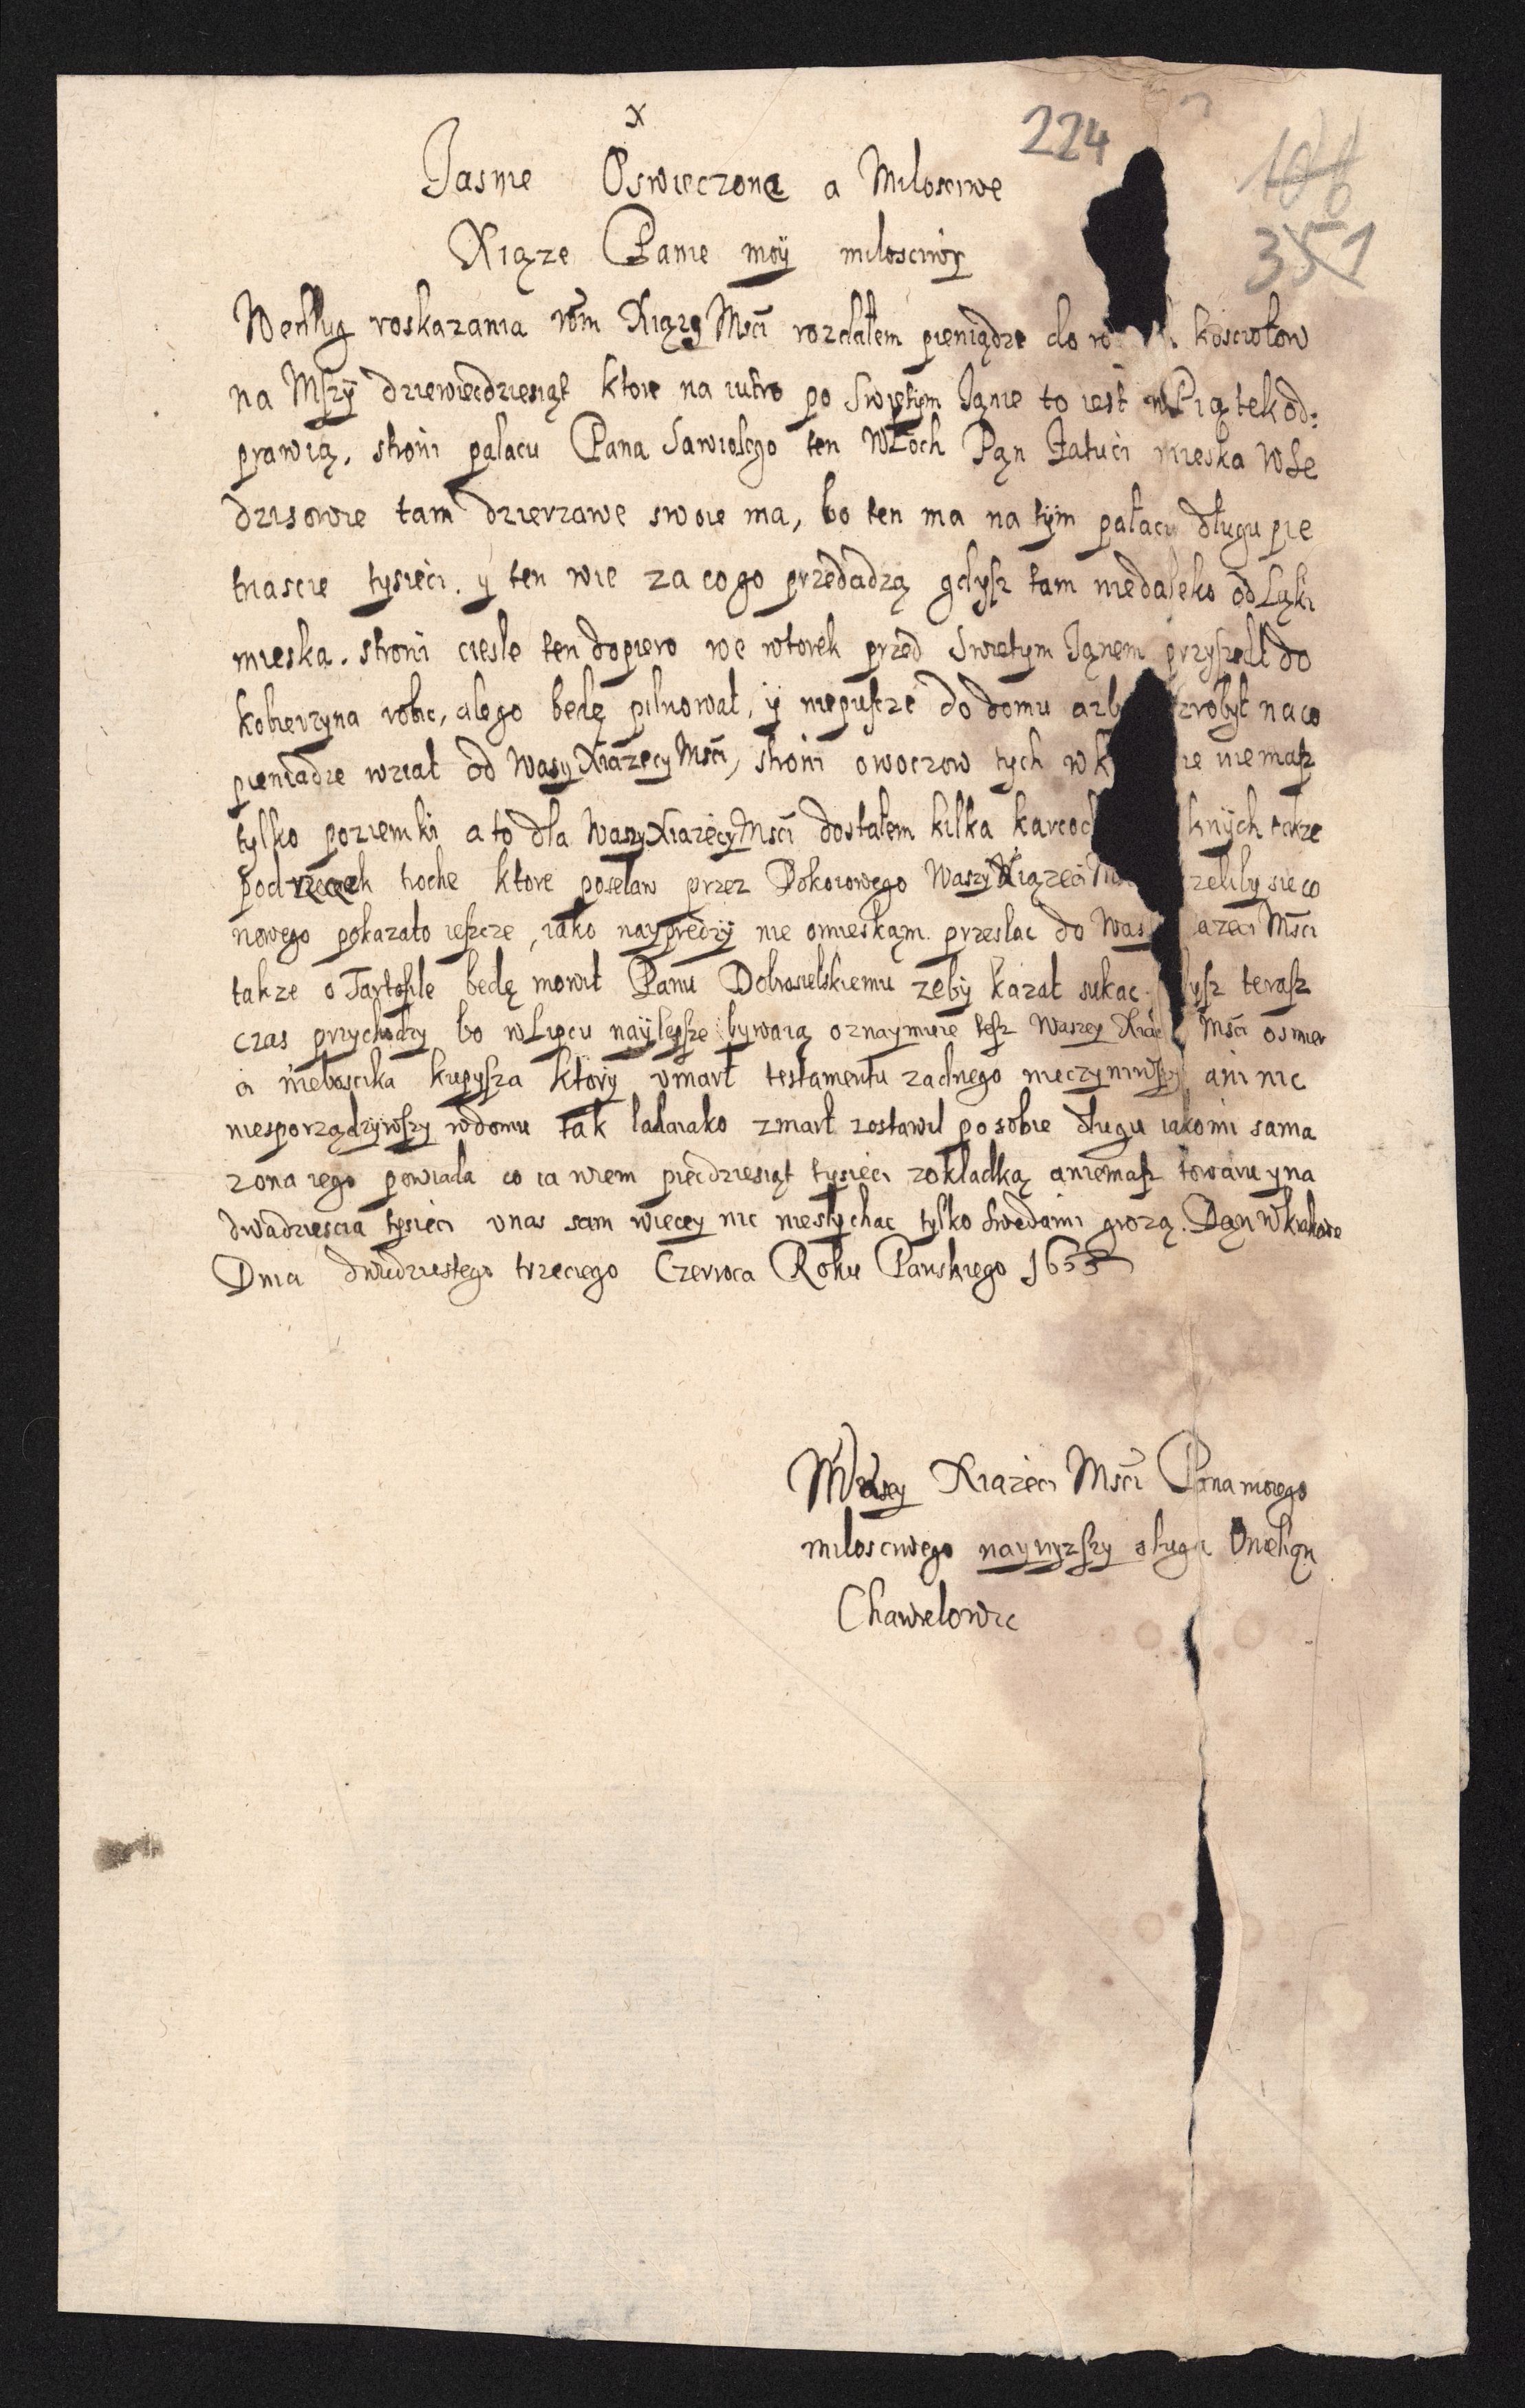 x
224
351
Jasnie Oswieczone a Milosciwe
Xiąze Panie moÿ milosciwy
Wedlug roskazania wm Xiązę Msći rozdałem pieniądze do kosciołow
na Mszÿ dziewiecdziesiąt ktore na iutro po Swiętÿm Iąnie to iest w Piątek od:
prawią, stroni palacu Pana ten Włoch Pąn mieska w Se
dzisowie tam dzierzawe swoie ma, bo ten ma na tÿm pałacu długu pie
tnascie tysieci. ÿ ten wie za co go przedadzą gdysz tam niedaleko od Ląki
mieska. stroni ciesle ten dopiero we wtorek przed Swietym Iąnem przyszedl do
kobierzyna robic, alego bedę pilnował, ÿ niepuszcze do domu zrobył na co
pieniadze wział od Waszy Xiazecy Msći, stroni owoczow tych w k ie niemasz
tylko poziemki a to dla Waszy Xiazecy Msći dostałem kilka karcoch knÿch takze
pod rzeczek troche ktore poselam przez Pokoiowego Waszy Xiązeci zeliby sie co
nowego pokazało ieszcze, iako nayprędzÿ nie omieskąm przeslac do Was azeci Msći
takze o Tartofile bedę mowił Panu Dobrosielskiemu zebÿ kazał sukac ysz terasz
czas przychodzy bo w Lipcu naÿlepsze bywaią oznaymuie tesz Waszey Xiaz Msći o smer
ci nieboscika kupysza ktorÿ vmarł testamentu zadnego nieczyniwszy ani nic
niesporządzÿwszy w domu tak ladaiako zmarł zostawił po sobie długu iako mi sama
zona iego powiada co ia wiem piecdziesiąt tysieci zokladką a niemasz towaru y na
dwadziescia tysieci v nas sam wiecey nic niesłychac tylko Swedami grozą. Dąn w krakowie
Dnia dwudziestego trzeciego Czerwca Roku Panskiego 1655
Waszey Xiazeci Msći Pana moiego
milosciwego naynizszy sługa
Chawelowic